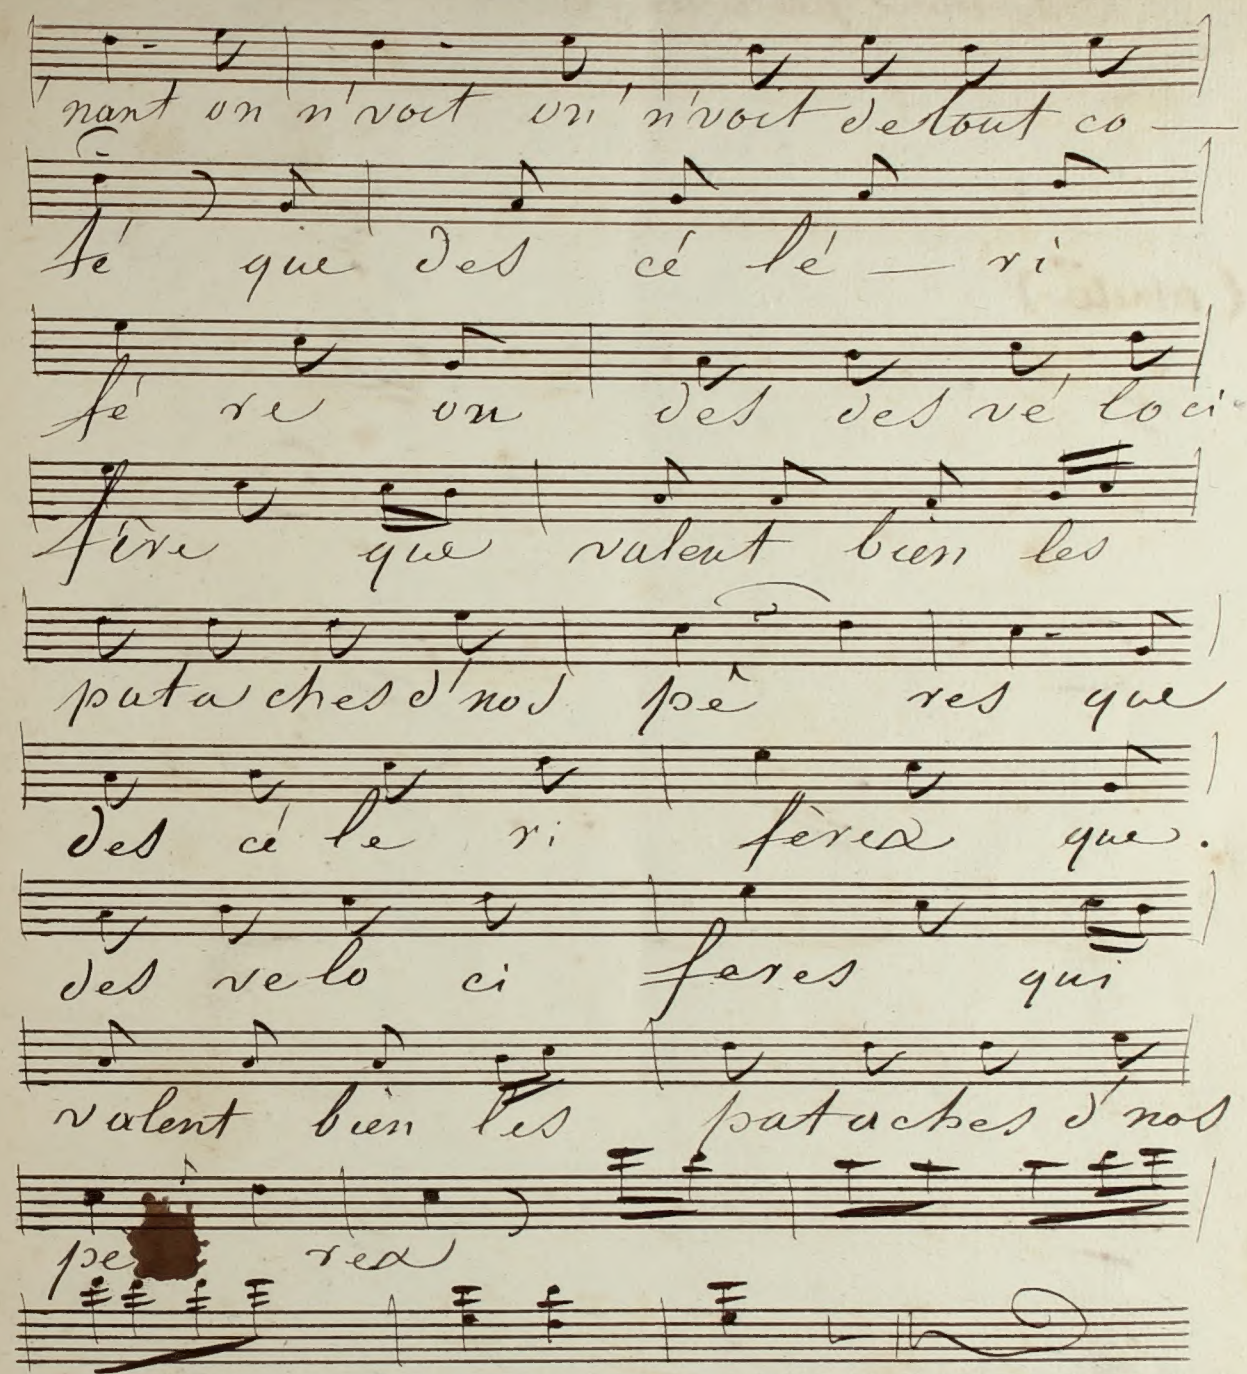 nant on n'voit on n'voit de tout co —
té que des cé lé — ri
fé re on des des vé loci
fère que valent bien les
pata ches d'nos pè res que
des cé le ri fères que.
des velo ci feres qui
valent bien les pataches d'nos
pe res